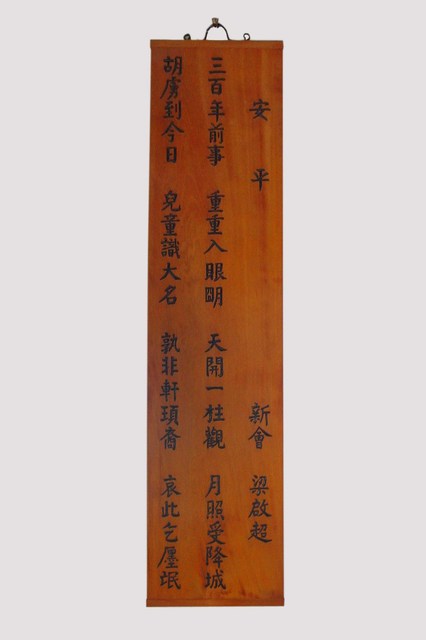 安平 新會 梁啟超
三百年前事 重重入眼朙 天開一柱觀 月照受降城
胡虜到今日 兒童識大名 孰非軒頊裔 哀此乞廛氓